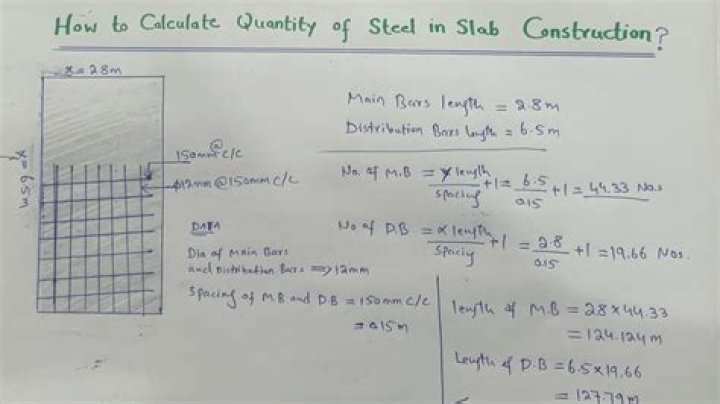 How to Calculate Quantity of Steel in Slab Construction?
x = 2.8m
y = 6.5m
150mm @ c/c
φ12mm@150mm c/c
Main Bars length = 2.8m
Distribution Bars length = 6.5m
No. of M.B = y length / spacing + 1 = 6.5 / 0.15 + 1 = 44.33 Nos
No of D.B = x length / spacing + 1 = 2.8 / 0.15 + 1 = 19.66 Nos.
DATA
Dia of Main Bars
and Distribution Bars ⇒ 12mm
Spacing of M.B and D.B = 150mm c/c
= 0.15m
length of M.B = 2.8 × 44.33
= 124.124m
Length of D.B = 6.5 × 19.66
= 127.79m